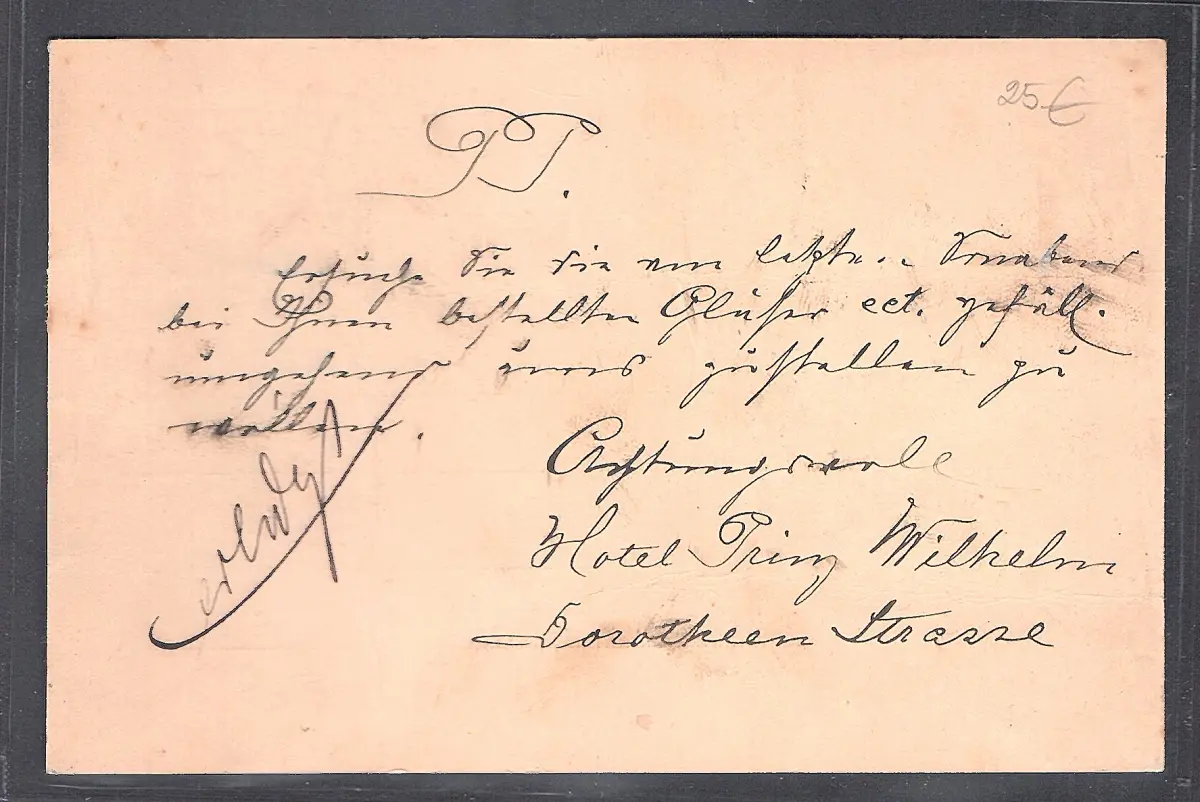 25 €
P.T.
Ersuche Sie die am letzten Sonnabend
bei Ihnen bestellten Gläser ect. gefäll.
umgehend uns zustellen zu
wollen.
Achtungsvoll
Hotel Prinz Wilhelm
Dorotheen Strasse
erledigt